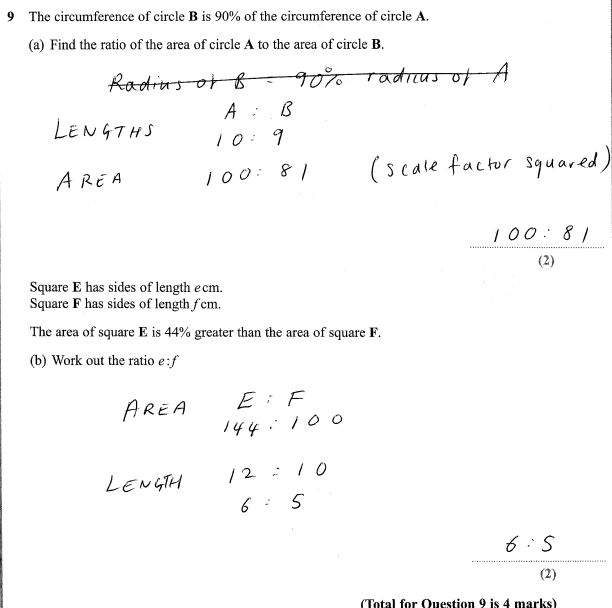 9 The circumference of circle B is 90% of the circumference of circle A.
(a) Find the ratio of the area of circle A to the area of circle B.
Radius of B = 90% radius of A
A : B
LENGTHS 10 : 9
AREA 100 : 81 (scale factor squared)
100 : 81
(2)
Square E has sides of length e cm.
Square F has sides of length f cm.
The area of square E is 44% greater than the area of square F.
(b) Work out the ratio e:f
E : F
AREA 144 : 100
LENGTH 12 : 10
6 : 5
6 : 5
(2)
(Total for Question 9 is 4 marks)